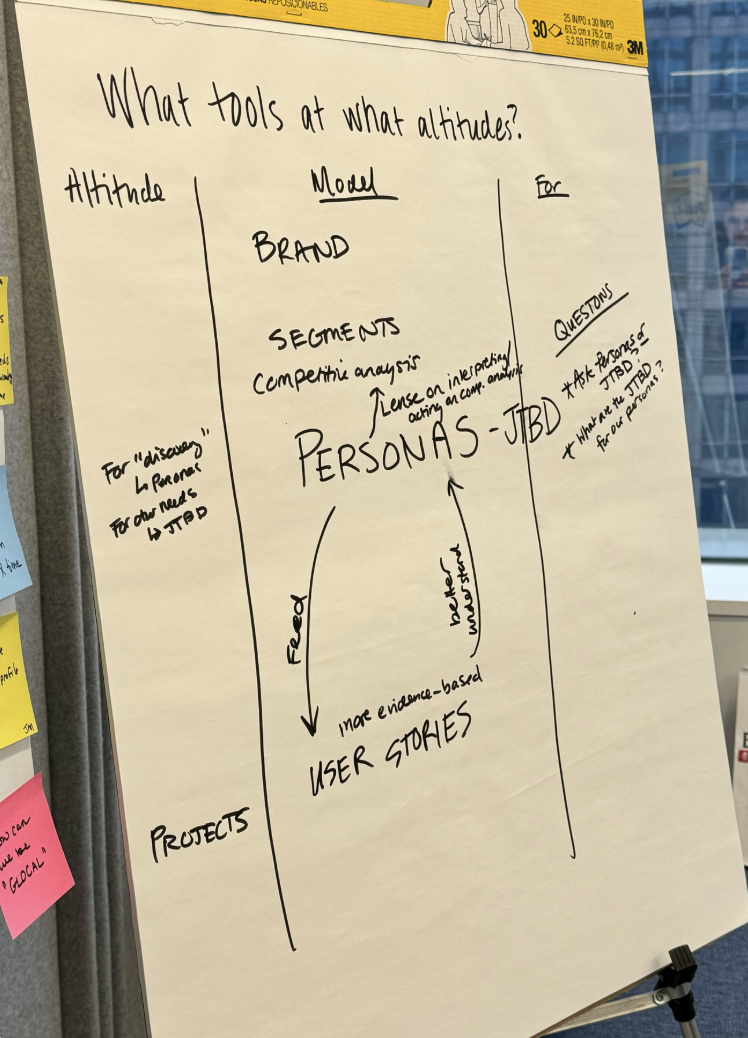 AS REPOSICIONABLES
30
25 IN/PO x 30 IN/PO
63,5 cm x 76,2 cm
5.2 SQ FT/PI² (0,48 m²)
3M
What tools at what altitudes?
Altitude
Model
For
BRAND
SEGMENTS
Competitive analysis
Lense on interpreting/
acting on comp. analysis
PERSONAS - JTBD
QUESTONS
* Ask Personas or
JTBD?
* What are the JTBD
for our personas?
For "discovery"
↳ Personas
For other needs
↳ JTBD
Feed
better
understand
more evidence-based
USER STORIES
PROJECTS
time
profile
JM
can
we be
"GLOCAL"